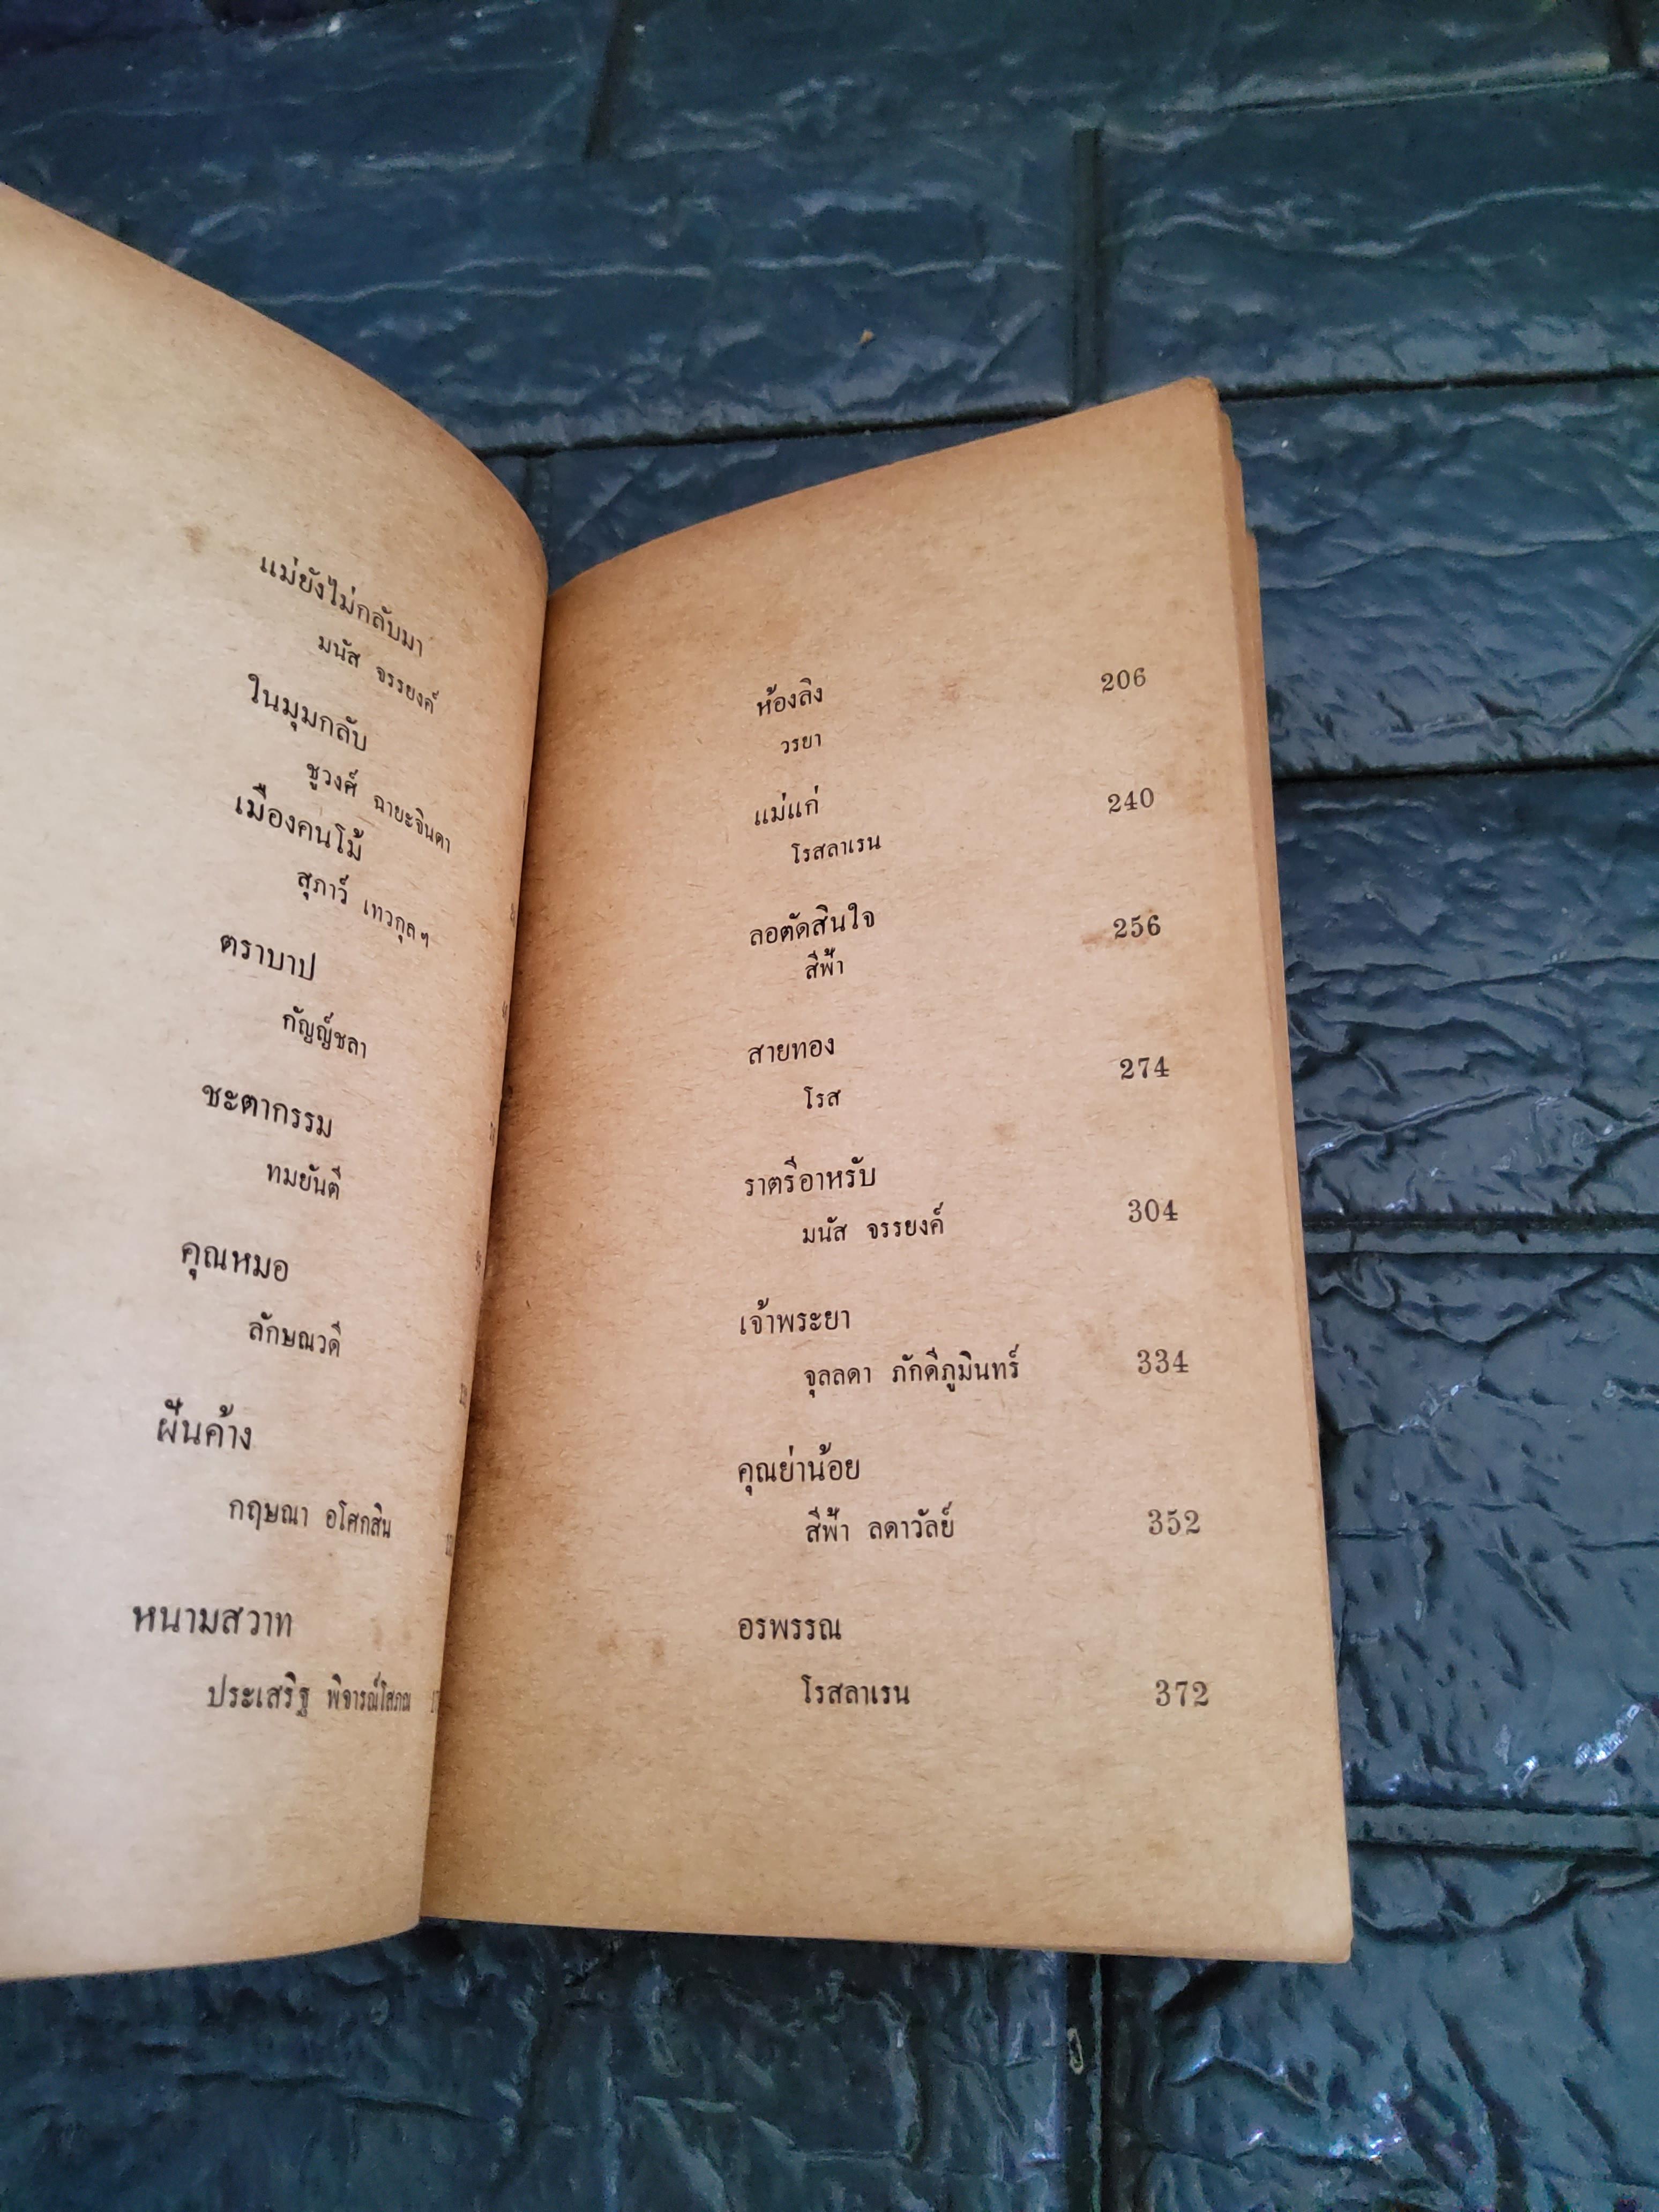 แม่ยังไม่กลับมา
มนัส จรรยงค์
ในมุมกลับ
ชูวงศ์ ฉายะจินดา
เมืองคนโม้
สุภาว์ เทวกุลฯ
ตราบาป
กัญญ์ชลา
ชะตากรรม
ทมยันตี
คุณหมอ
ลักษณวดี
ฝันค้าง
กฤษณา อโศกสิน
หนามสวาท
ประเสริฐ พิจารณ์โสภณ
ห้องลิง 206
วรยา
แม่แก่ 240
โรสลาเรน
ลอตัดสินใจ 256
สีฟ้า
สายทอง 274
โรส
ราตรีอาหรับ
มนัส จรรยงค์ 304
เจ้าพระยา
จุลลดา ภักดีภูมินทร์ 334
คุณย่าน้อย
สีฟ้า ลดาวัลย์ 352
อรพรรณ
โรสลาเรน 372